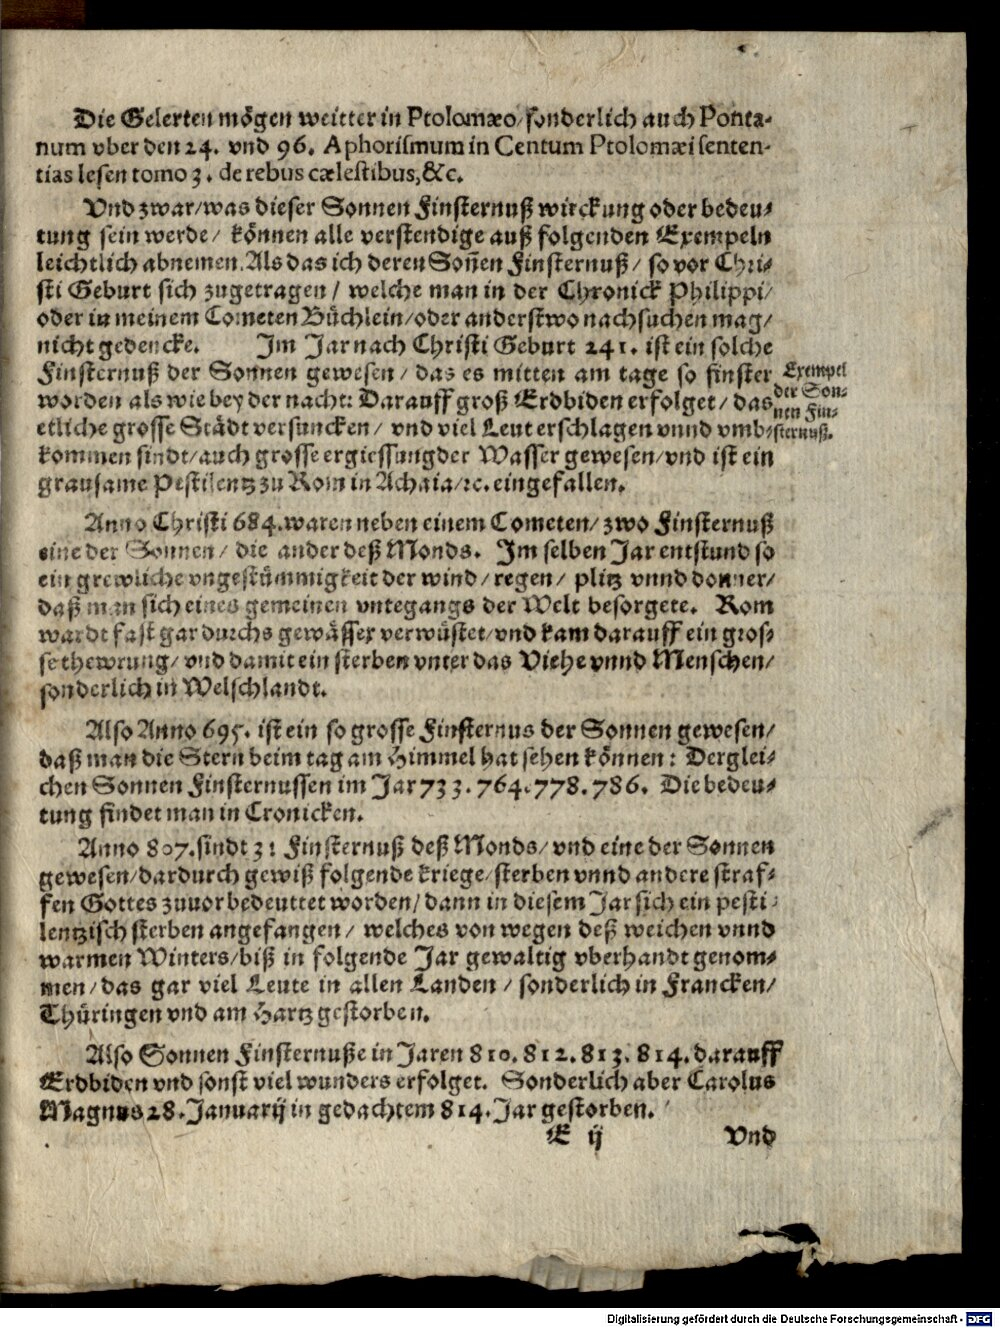 Die Gelerten mögen weitter in Ptolomæo/sonderlich auch Ponta-
num vber den 24. vnd 96. Aphorismum in Centum Ptolomæi senten-
tias lesen tomo 3. de rebus cælestibus,&c.
Vnd zwar/was dieser Sonnen Finsternuß wirckung oder bedeu-
tung sein werde/ können alle verstendige auß folgenden Exempeln
leichtlich abnemen. Als das ich deren Soñen Finsternuß/ so vor Chri-
sti Geburt sich zugetragen/ welche man in der Chronick Philippi/
oder in meinem Cometen Büchlein/oder anderstwo nachsuchen mag/
nicht gedencke. Im Jar nach Christi Geburt 241. ist ein solche
Finsternuß der Sonnen gewesen/ das es mitten am tage so finster
worden als wie bey der nacht: Darauff groß Erdbiden erfolget/ das
etliche grosse Städt versuncken/ vnd viel Leut erschlagen vnnd vmb-
kommen sindt/auch grosse ergiessung der Wasser gewesen/vnd ist ein
grausame Pestilentz zu Rom in Achaia/ꝛc. eingefallen.
Exempel
der Son-
nen Fin-
sternuß.
Anno Christi 684. waren neben einem Cometen/ zwo Finsternuß
eine der Sonnen/ die ander deß Monds. Im selben Jar entstund so
ein grewliche vngestümmigkeit der wind/ regen/ plitz vnnd donner/
daß man sich eines gemeinen vntegangs der Welt besorgete. Rom
wardt fast gar durchs gewässer verwüstet/vnd kam darauff ein gros-
se thewrung/ vnd damit ein sterben vnter das Viehe vnnd Menschen/
sonderlich in Welschlandt.
Also Anno 695. ist ein so grosse Finsternus der Sonnen gewesen/
daß man die Stern beim tag am Himmel hat sehen können: Derglei-
chen Sonnen Finsternussen im Jar 733. 764. 778. 786. Die bedeu-
tung findet man in Cronicken.
Anno 807. sindt 31 Finsternuß deß Monds/ vnd eine der Sonnen
gewesen/dardurch gewiß folgende kriege/sterben vnnd andere straf-
fen Gottes zuuor bedeuttet worden/ dann in diesem Jar sich ein pesti-
lentzisch sterben angefangen/ welches von wegen deß weichen vnnd
warmen Winters/biß in folgende Jar gewaltig vberhandt genom-
men/das gar viel Leute in allen Landen/ sonderlich in Francken/
Thüringen vnd am Hartz gestorben.
Also Sonnen Finsternuße in Jaren 810. 812. 813. 814. darauff
Erdbiden vnd sonst viel wunders erfolget. Sonderlich aber Carolus
Magnus 28. Januarij in gedachtem 814. Jar gestorben.
E ij Vnd
Digitalisierung gefördert durch die Deutsche Forschungsgemeinschaft - DFG